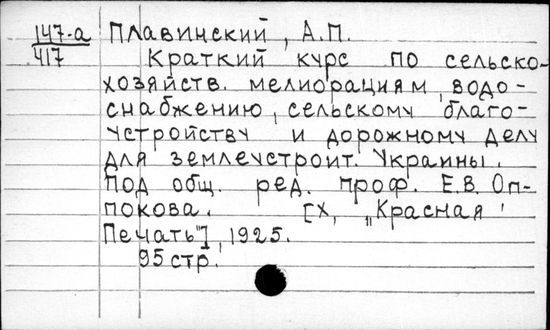 147-а Плавинский, А.П.
417 Краткий курс по сельско-
хозяйств. мелиорациям, водо-
снабжению, сельскому благо-
устройству и дорожному делу
для землеустроит. Украины.
Под общ. ред. проф. Е.В. Оп-
покова. [Х, „Красная
Печать"], 1925.
95 стр.